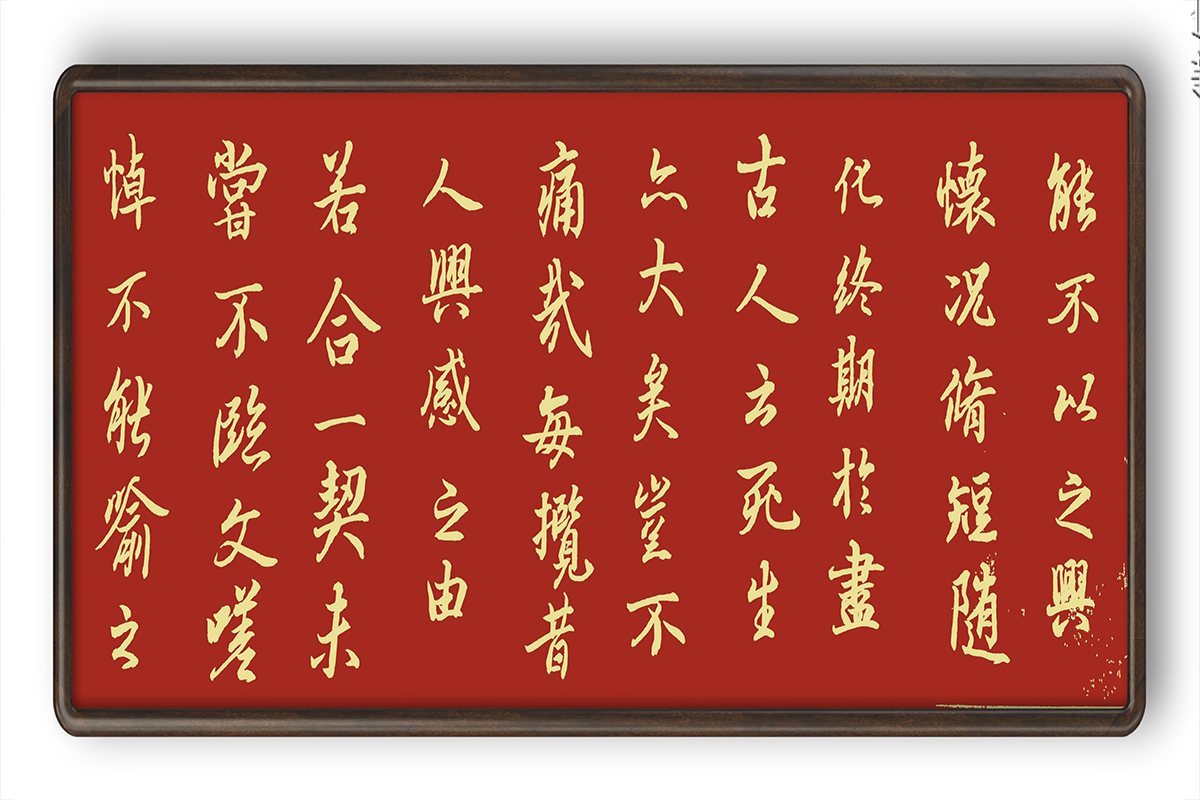 能不以之興
懷况脩短随
化終期於盡
古人云死生
亦大矣豈不
痛哉每攬昔
人興感之由
若合一契未
嘗不臨文嗟
悼不能喻之